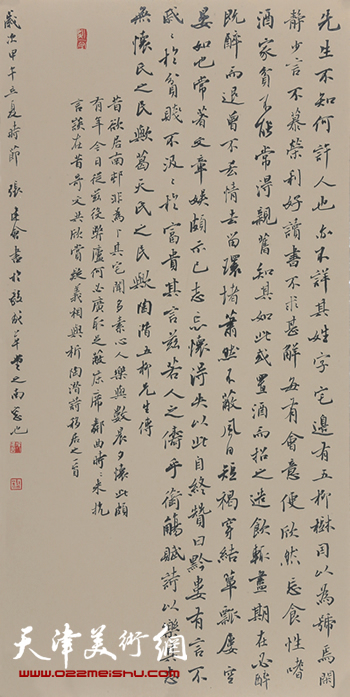 先生不知何許人也亦不詳其姓字宅邊有五柳樹因以為號焉閑
靜少言不慕榮利好讀書不求甚解每有會意便欣然忘食性嗜
酒家貧不能常得親舊知其如此或置酒而招之造飲輒盡期在必醉
既醉而退曾不吝情去留環堵蕭然不蔽風日短褐穿結簞瓢屢空
晏如也常著文章娛頗示己志忘懷得失以此自終贊曰黔婁有言不
戚戚於貧賤不汲汲於富貴其言茲若人之儔乎銜觴賦詩以樂其志
無懷民之民歟葛天民之民歟陶潛五柳先生傳
昔欲居南邨非為卜其宅聞多素心人樂與數晨夕懷此頗
有年今日從茲役弊廬何必廣取足蔽床席鄰曲時時來抗
言談在昔奇文共欣賞疑義相與析陶潛詩移居之一首
歲次甲午五夏時節張建會書於
之南窗也
天津美術網
www.022meishu.com